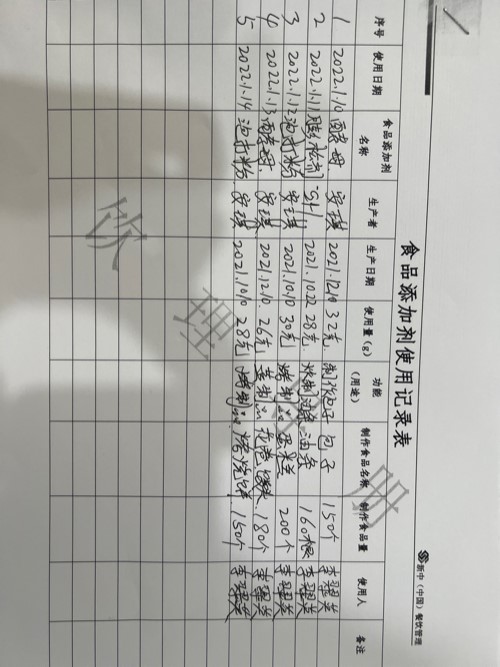 新中（中国）餐饮管理
食品添加剂使用记录表
序号 使用日期 食品添加剂名称 生产者 生产日期 使用量(g) 功能(用途) 制作食品名称 制作食品量 使用人 备注
1 2022.1.10 酵母 安琪 2021.12.10 32克 制作包子 包子 150个
2 2022.1.11 膨松剂 2021.10.22 28克 炸制油条 油条 160根
3 2022.1.12 泡打粉 安琪 2021.10.10 30克 烤制品 200个
4 2022.1.13 酵母 安琪 2021.12.10 26克 蒸制品 花卷 馒头 180个
5 2022.1.14 泡打粉 安琪 2021.10.10 28克 烤制品 烧饼 150个
饮 理 册